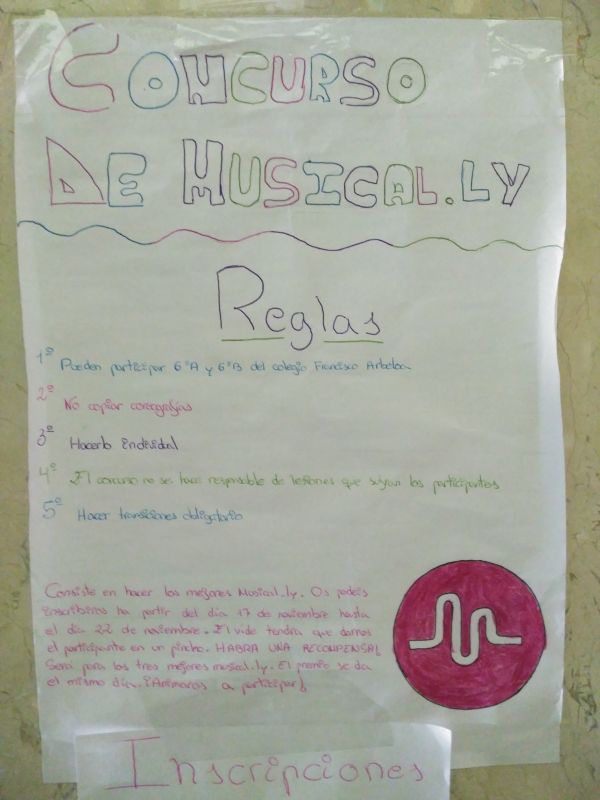 CONCURSO
DE MUSICAL.LY
Reglas
1º Pueden participar 6ºA y 6ºB del colegio Francisco
2º No copiar coreografías
3º Hacerlo individal
4º El concurso no se hace responsable de lesiones que sufran los participantes
5º Hacer transiciones obligatorio
Consiste en hacer los mejores Musical.ly. Os podeis
inscribiros ha partir del día 17 de noviembre hasta
el día 22 de noviembre. El vide tendra que darnos
el participante en un pincho. HABRA UNA RECONPENSA!
Será para los tres mejores musical.ly. El premio se da
el mismo día. ¡Animaros a participar!
Inscripciones